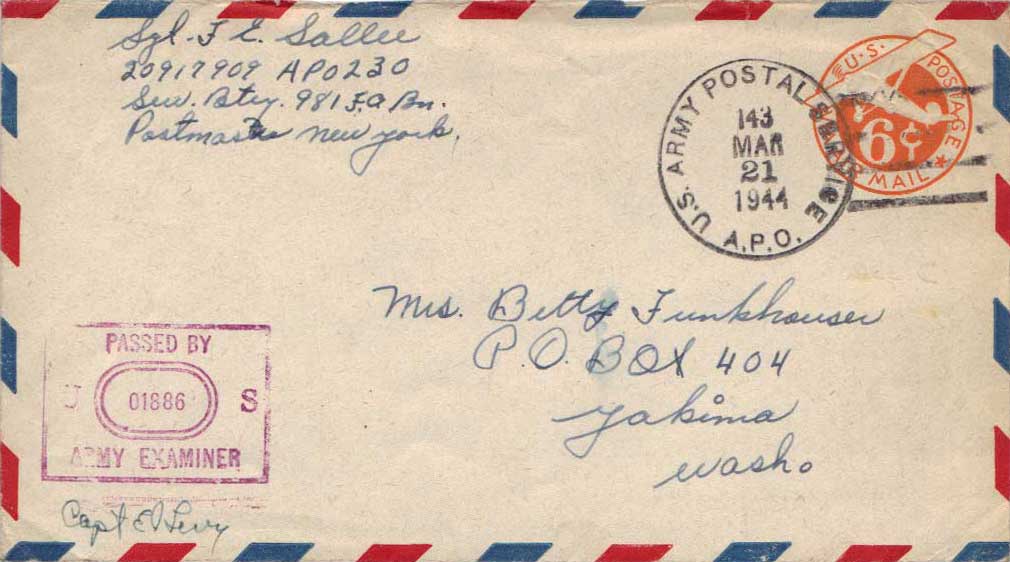 Sgt. F E. Sallee
20917909 APO230
Serv. Btry. 981 F.A Bn.
Postmaster New York,
U.S. ARMY POSTAL SERVICE
A.P.O.
143
MAR
21
1944
U.S. POSTAGE
6¢
AIR MAIL
Mrs. Betty Funkhouser
P.O. BOX 404
Yakima
Wash.
PASSED BY
U 01886 S
ARMY EXAMINER
Capt E Levy